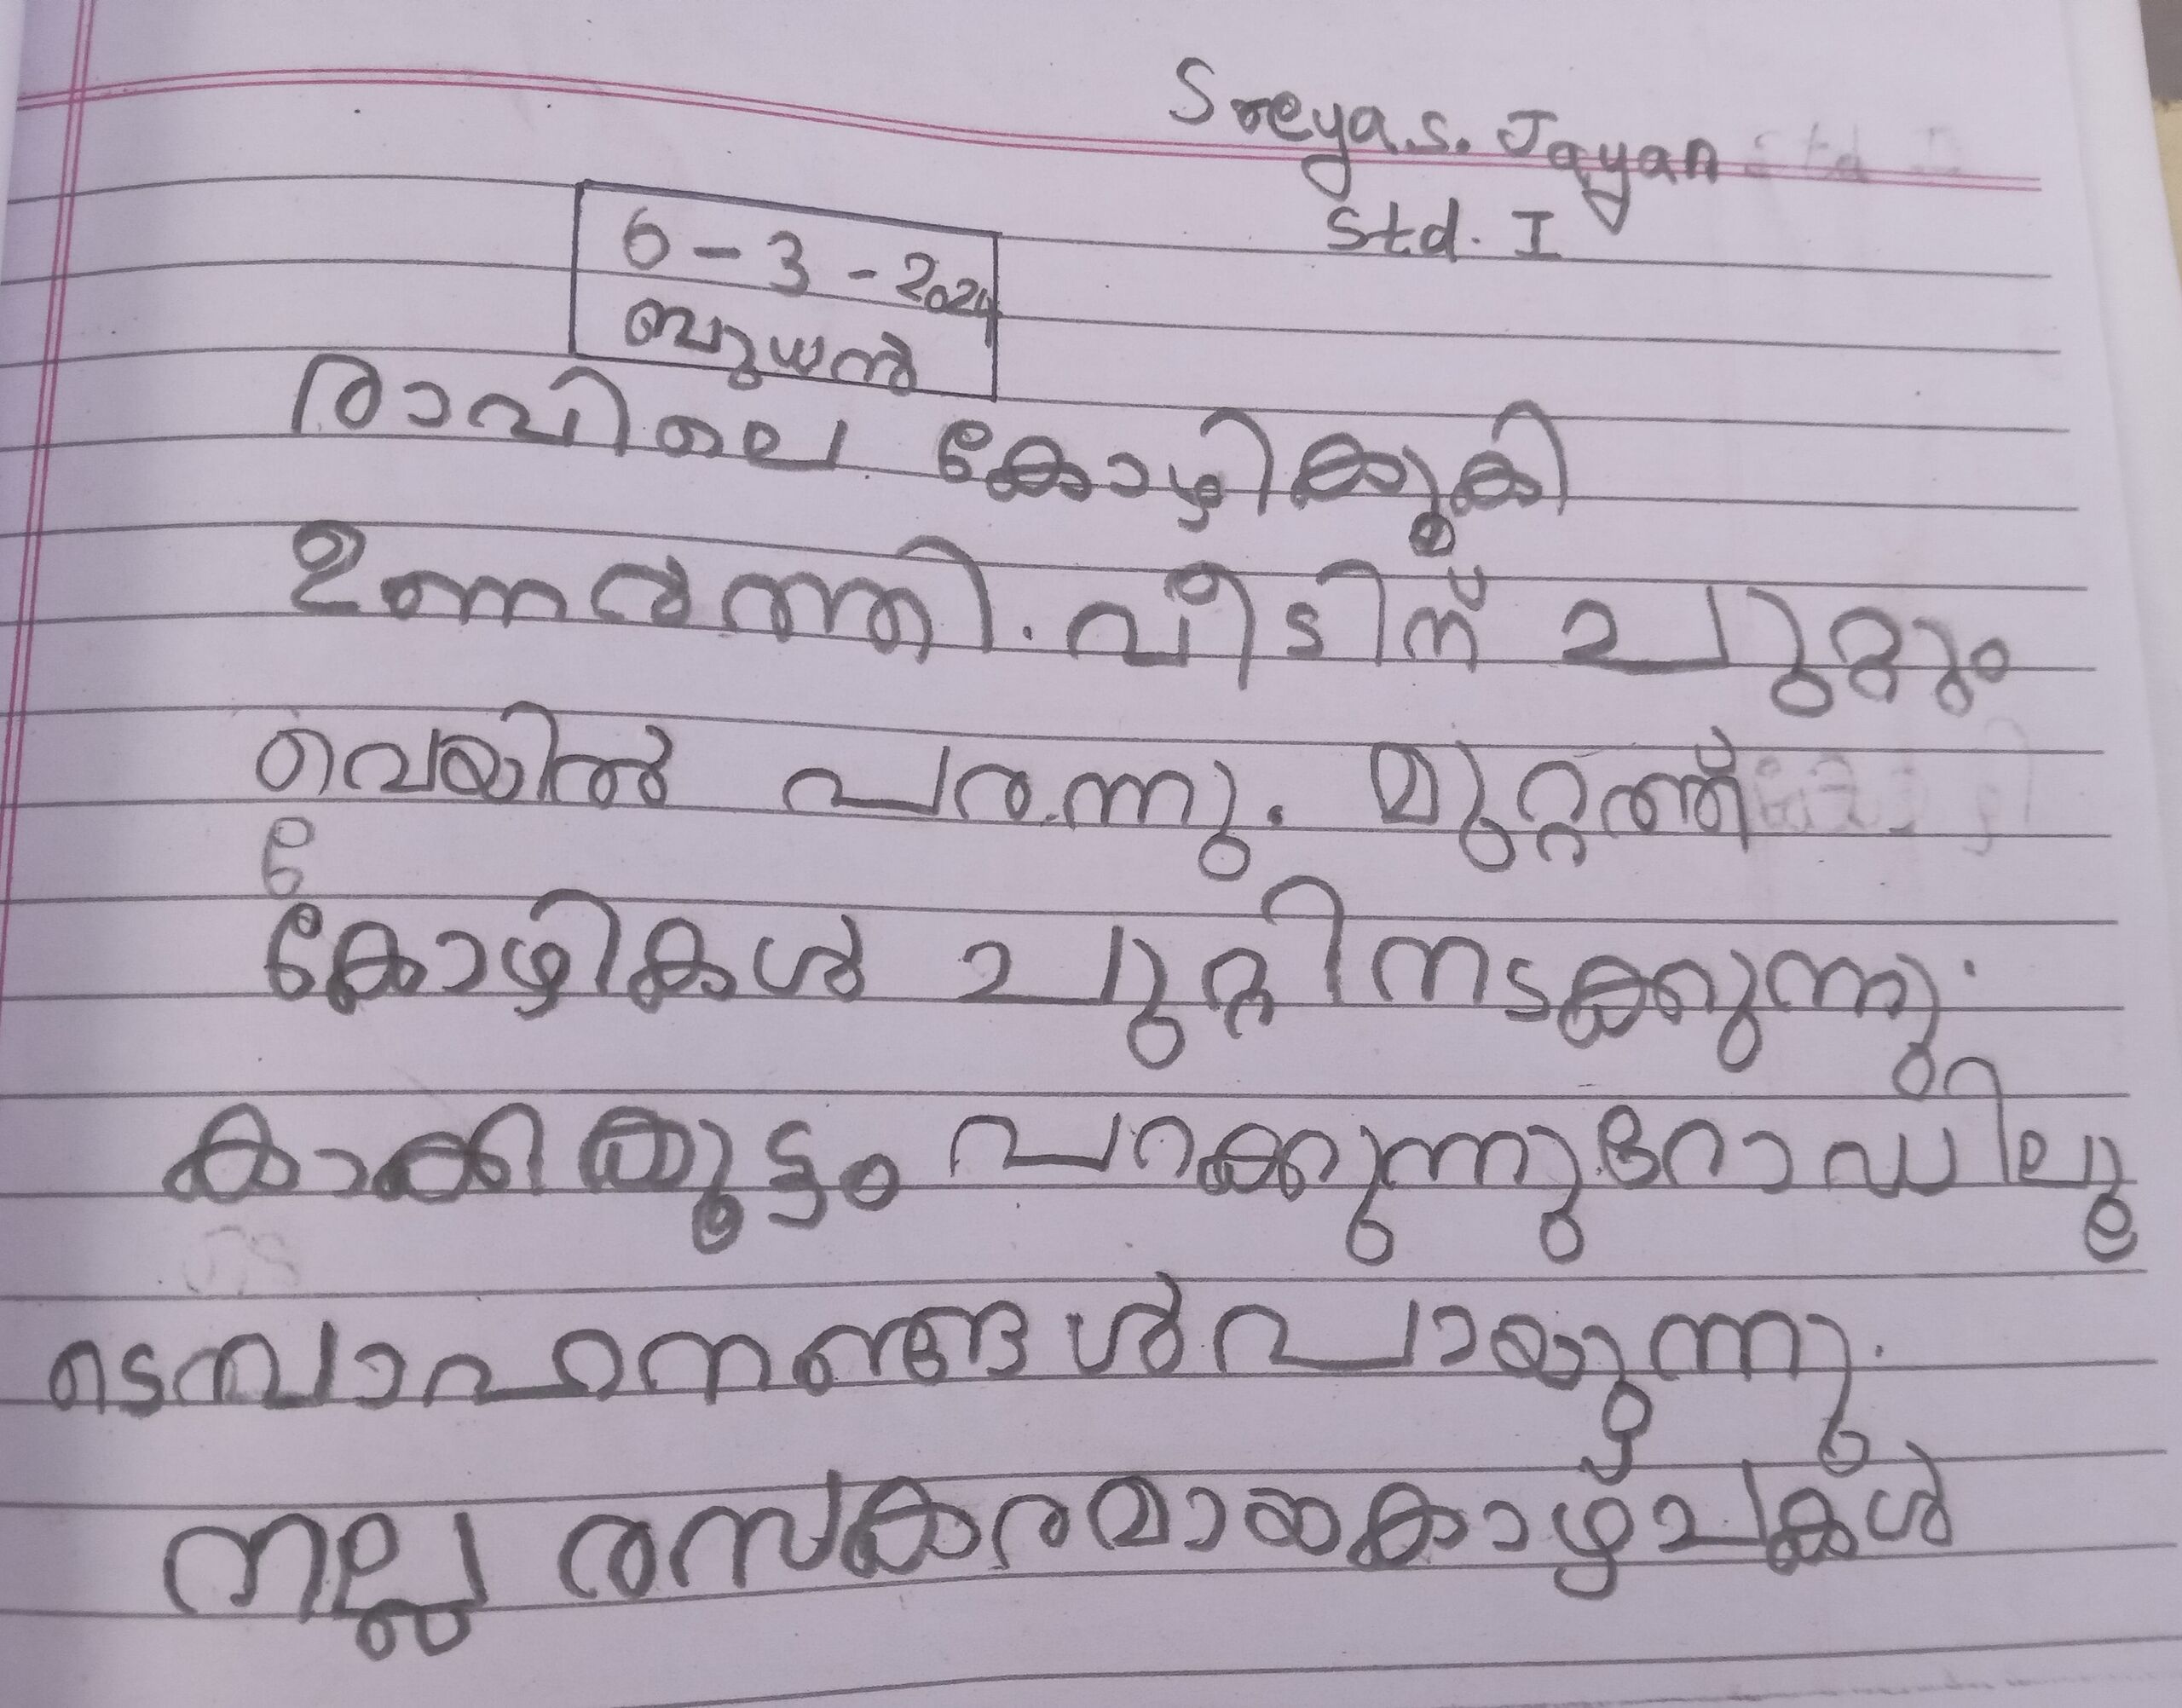 Sreya.s. Jayan
Std. I
6-3-2024
ബുധൻ
രാവിലെ കോഴികൂകി
ഉണർത്തി. വീടിന് ചുറ്റും
വെയിൽ പരന്നു. മുറ്റത്ത്
കോഴികൾ ചുറ്റിനടക്കുന്നു.
കാക്കകൂട്ടം പറക്കുന്നു. റോഡിലൂ
ടെ വാഹനങ്ങൾ പായുന്നു.
നല്ല രസകരമായ കാഴ്ചകൾ